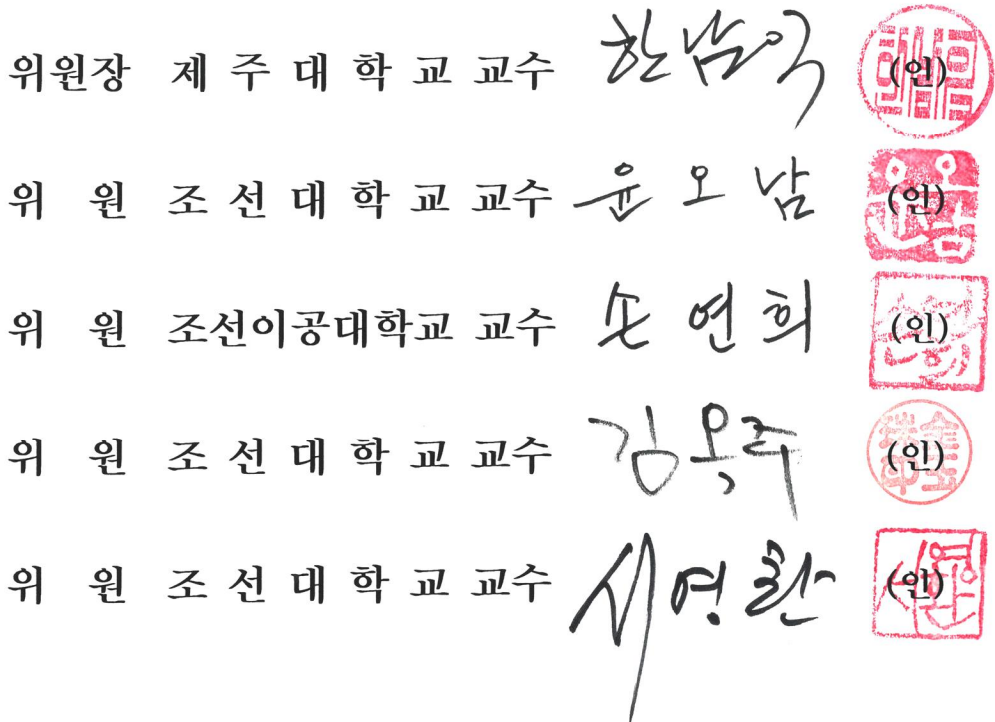 위원장 제 주 대 학 교 교수 한남익 (인)
위 원 조 선 대 학 교 교수 윤오남 (인)
위 원 조선이공대학교 교수 손연희 (인)
위 원 조 선 대 학 교 교수 김옥주 (인)
위 원 조 선 대 학 교 교수 서영환 (인)